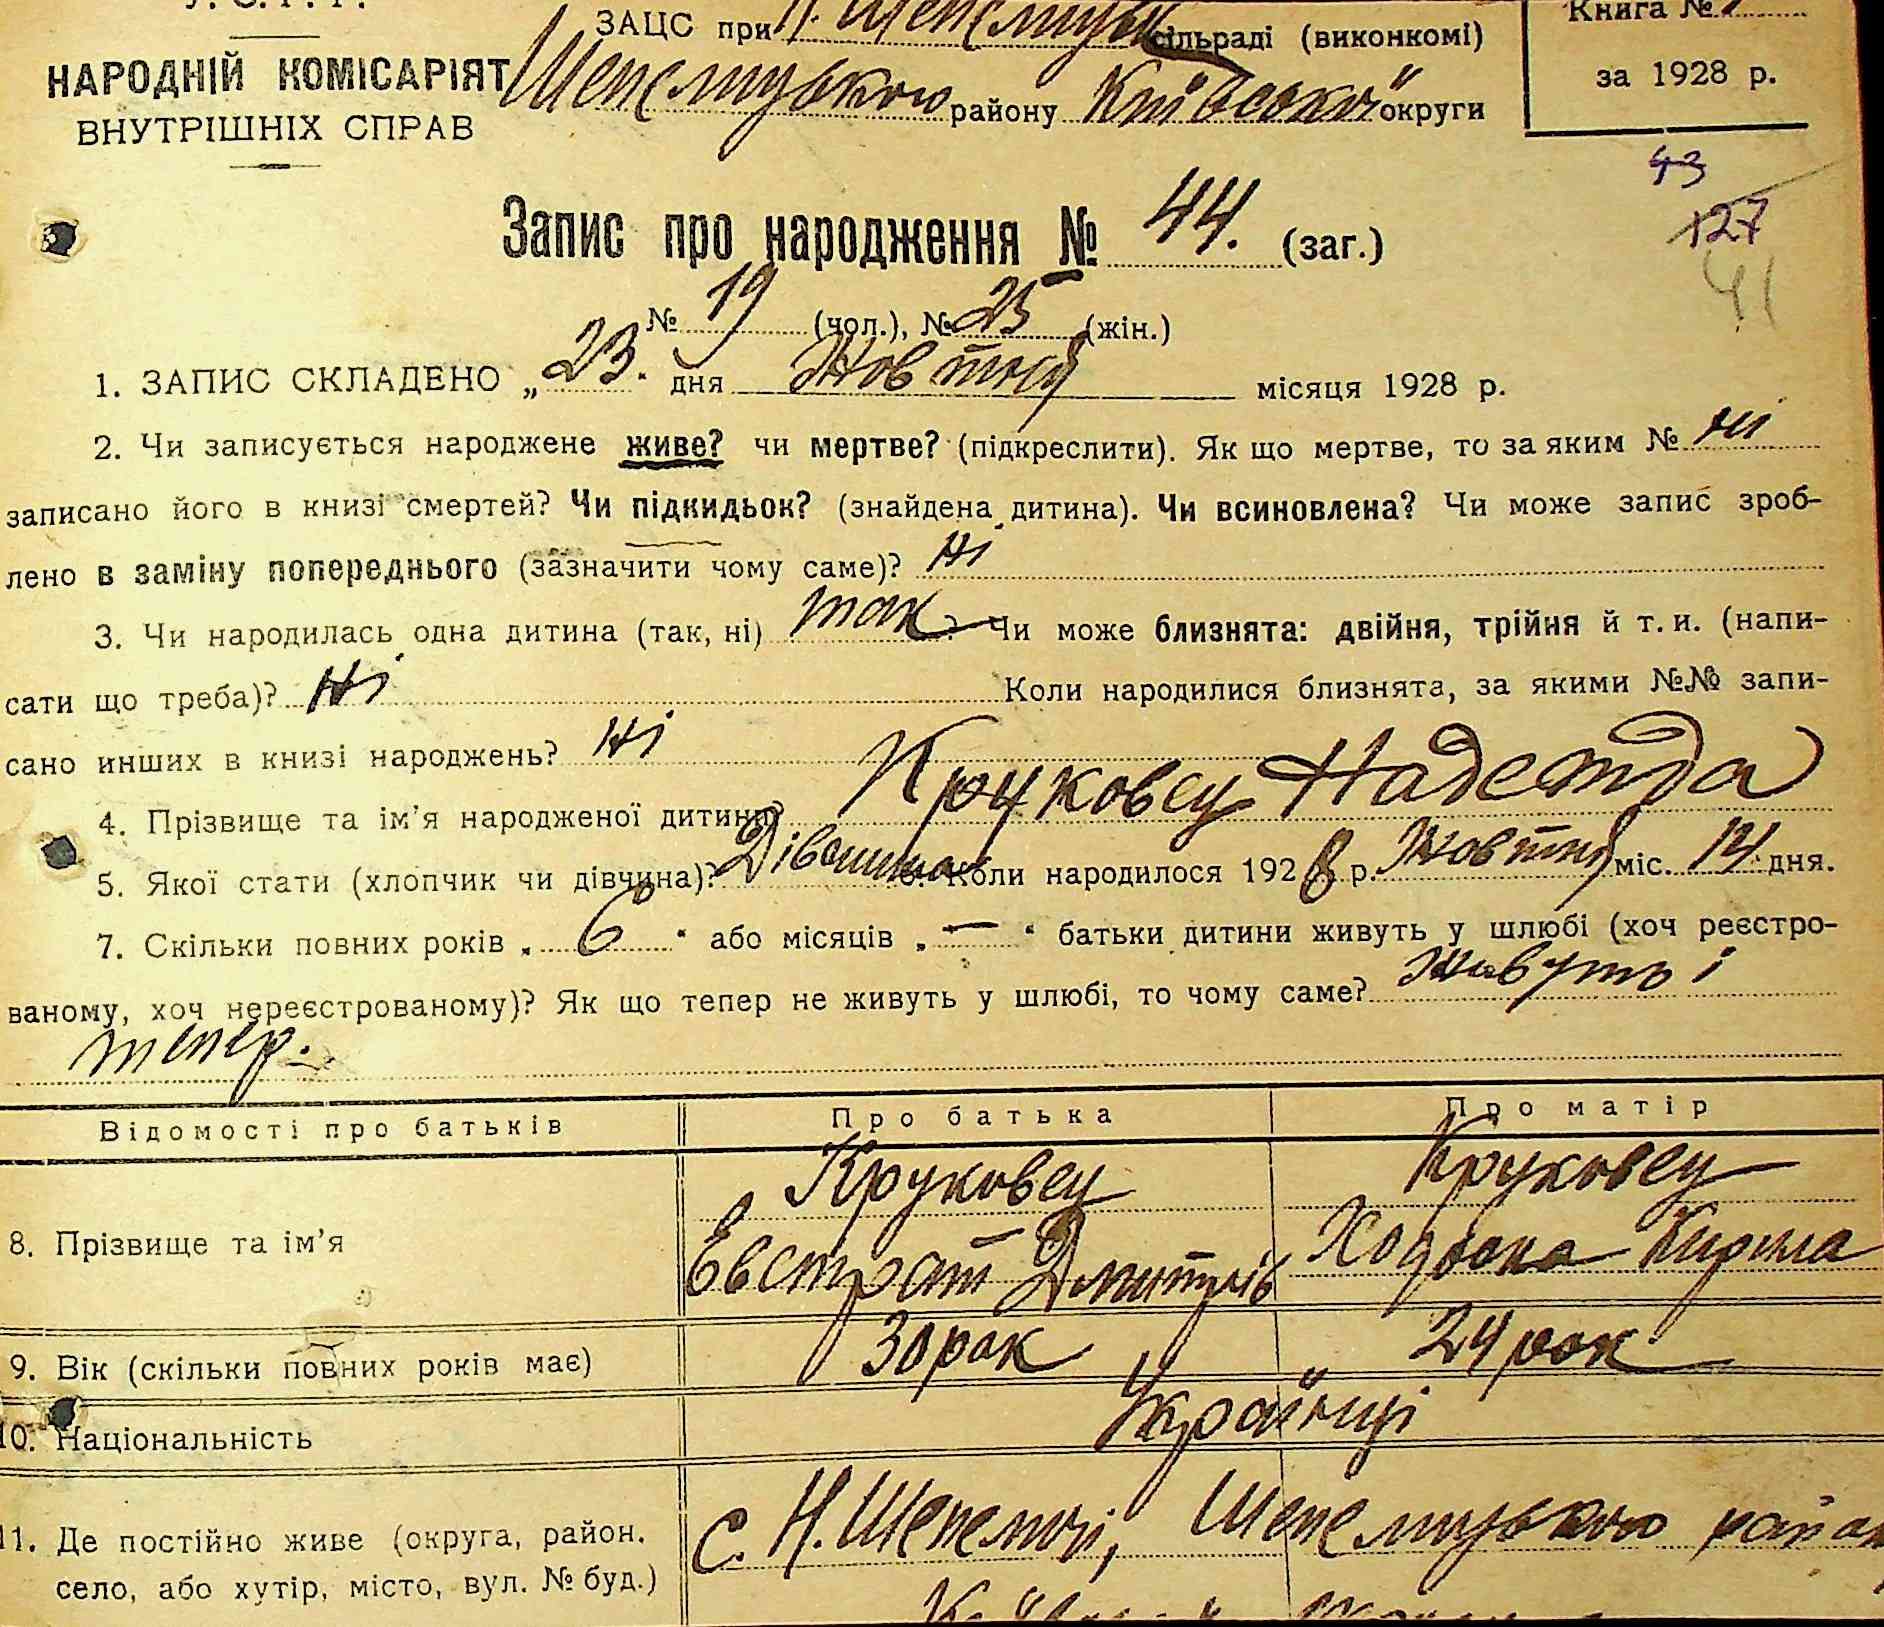 У. С. Р. Р.
НАРОДНІЙ КОМІСАРІЯТ
ВНУТРІШНІХ СПРАВ
ЗАЦС при Н. Шепелицьк сільраді (виконкомі)
Шепелицького району Київської округи
Книга №
за 1928 р.
43
127
41
Запис про народження № 44. (заг.)
№ 19 (чол.), № 25 (жін.)
1. ЗАПИС СКЛАДЕНО „23" дня Жовтня місяця 1928 р.
2. Чи записується народжене живе? чи мертве? (підкреслити). Як що мертве, то за яким № ні
записано його в книзі смертей? Чи підкидьок? (знайдена дитина). Чи всиновлена? Чи може запис зроб-
лено в заміну попереднього (зазначити чому саме)? Ні
3. Чи народилась одна дитина (так, ні) так Чи може близнята: двійня, трійня й т. и. (напи-
сати що треба)? Ні Коли народилися близнята, за якими №№ запи-
сано инших в книзі народжень? Ні
4. Прізвище та ім'я народженої дитини? Круковец Надежда
5. Якої стати (хлопчик чи дівчина)? Дівчина 6. Коли народилося 1928 р. Жовтня міс. 14 дня.
7. Скільки повних років „6" або місяців „—" батьки дитини живуть у шлюбі (хоч реєстро-
ваному, хоч нереєстрованому)? Як що тепер не живуть у шлюбі, то чому саме? Живуть і
тепер.
Відомості про батьків Про батька Про матір
Круковец Круковец
8. Прізвище та ім'я Евстрат Дмитрів Кирила
9. Вік (скільки повних років має) 30 рок 24 рок
10. Національність Українці
11. Де постійно живе (округа, район, с. Н. Шепеличі, Шепелицького район
село, або хутір, місто, вул. № буд.)